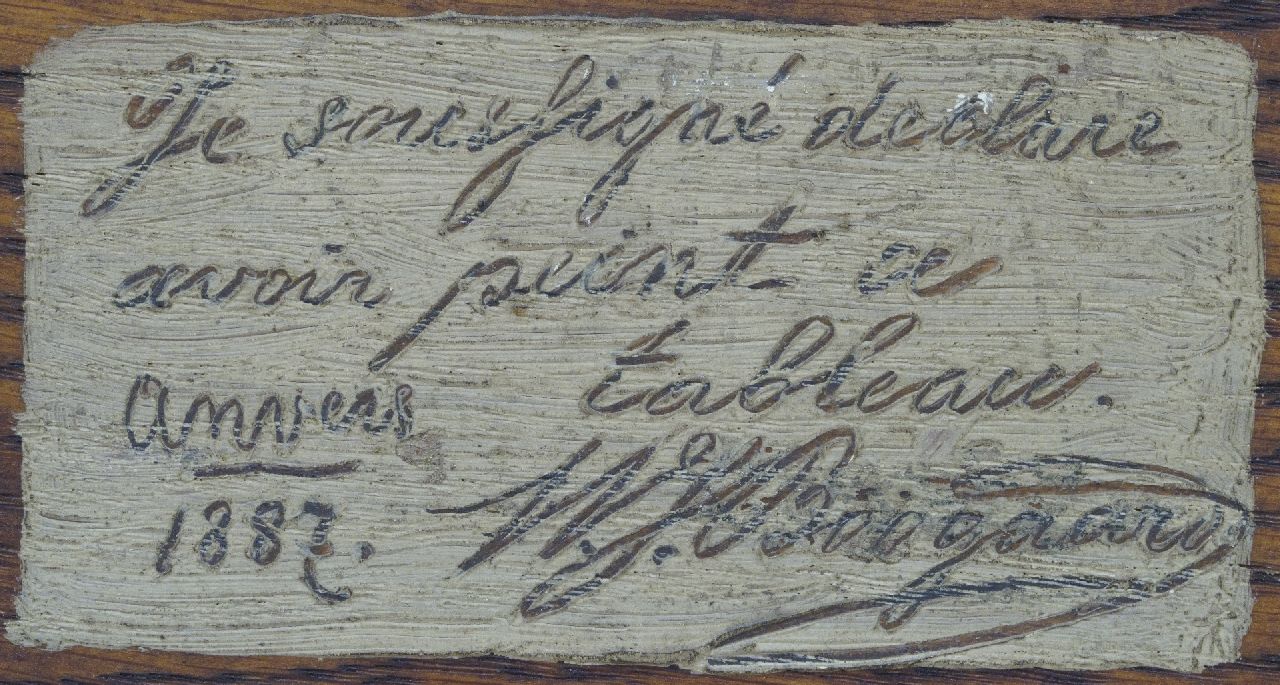 Je soussigné declare
avoir peint ce
tableau.
Anvers
1887.
W. J. Boogaard